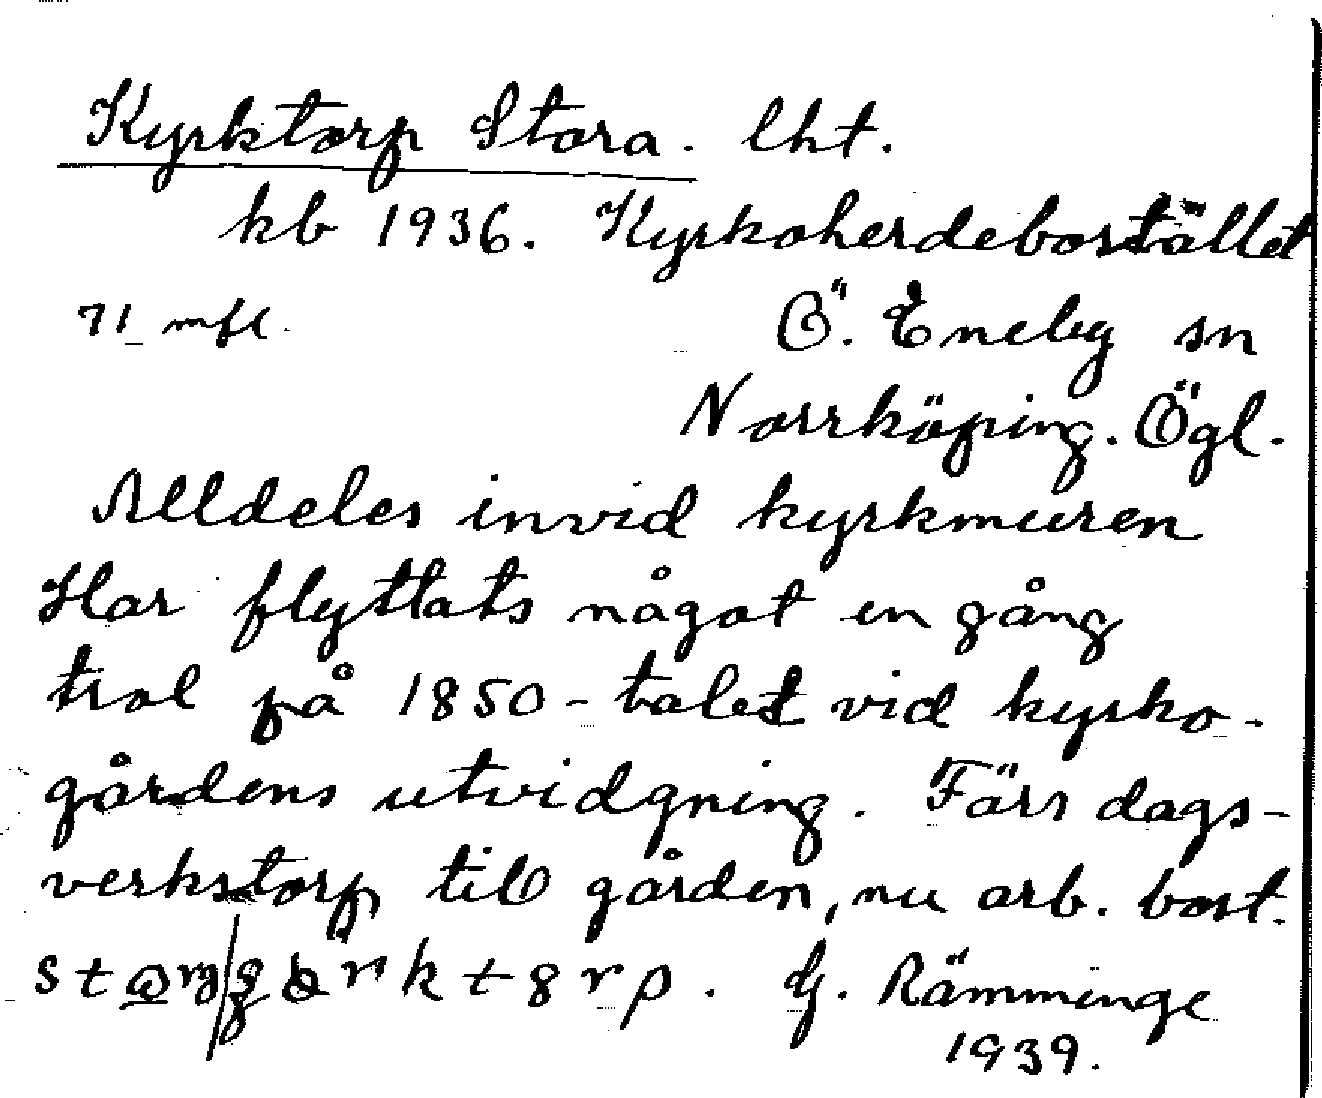 Kyrktorp Stora. lht.
kb 1936. Kyrkoherdebostället
71 mfl.
Ö. Eneby sn
Norrköping. Ögl.
Alldeles invid kyrkmuren
Har flyttats något en gång
trol på 1850-talet vid kyrko-
gårdens utvidgning. Förr dags-
verkstorp till gården, nu arb. bost.
G. Rämminge
1939.